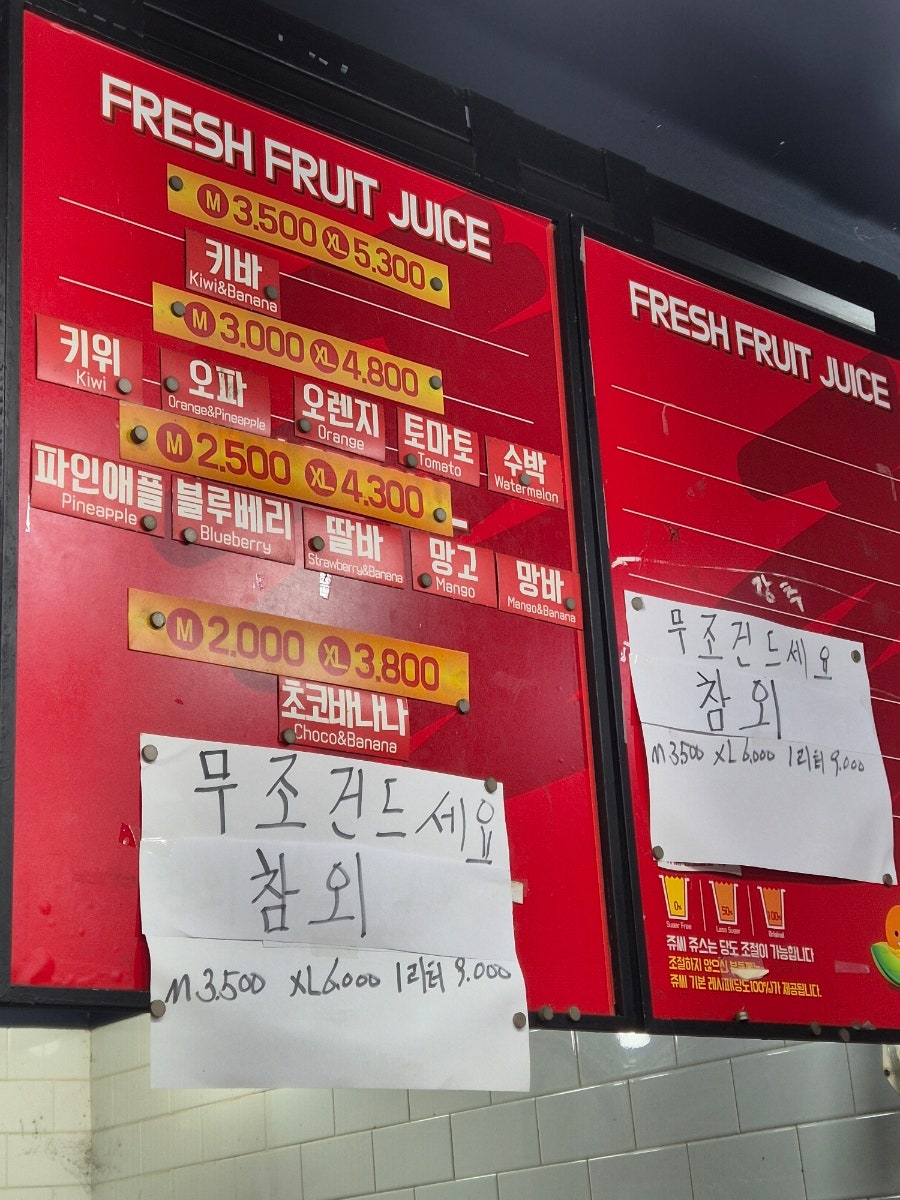 FRESH FRUIT JUICE
M 3.500 XL 5.300
키바
Kiwi&Banana
M 3.000 XL 4.800
키위
Kiwi
오파
Orange&Pineapple
오렌지
Orange
토마토
Tomato
수박
Watermelon
M 2.500 XL 4.300
파인애플
Pineapple
블루베리
Blueberry
딸바
Strawberry&Banana
망고
Mango
망바
Mango&Banana
M 2.000 XL 3.800
초코바나나
Choco&Banana
무조건드세요
참외
M 3.500 XL 6.000 1리터 9.000
FRESH FRUIT JUICE
강추
무조건드세요
참외
M 3500 XL 6.000 1리터 9.000
0%
Sugar Free
50%
Less Sugar
100%
Original
쥬씨 쥬스는 당도 조절이 가능합니다
조절하지 않으신
쥬씨 기본 레시피(당도100%)가 제공됩니다.